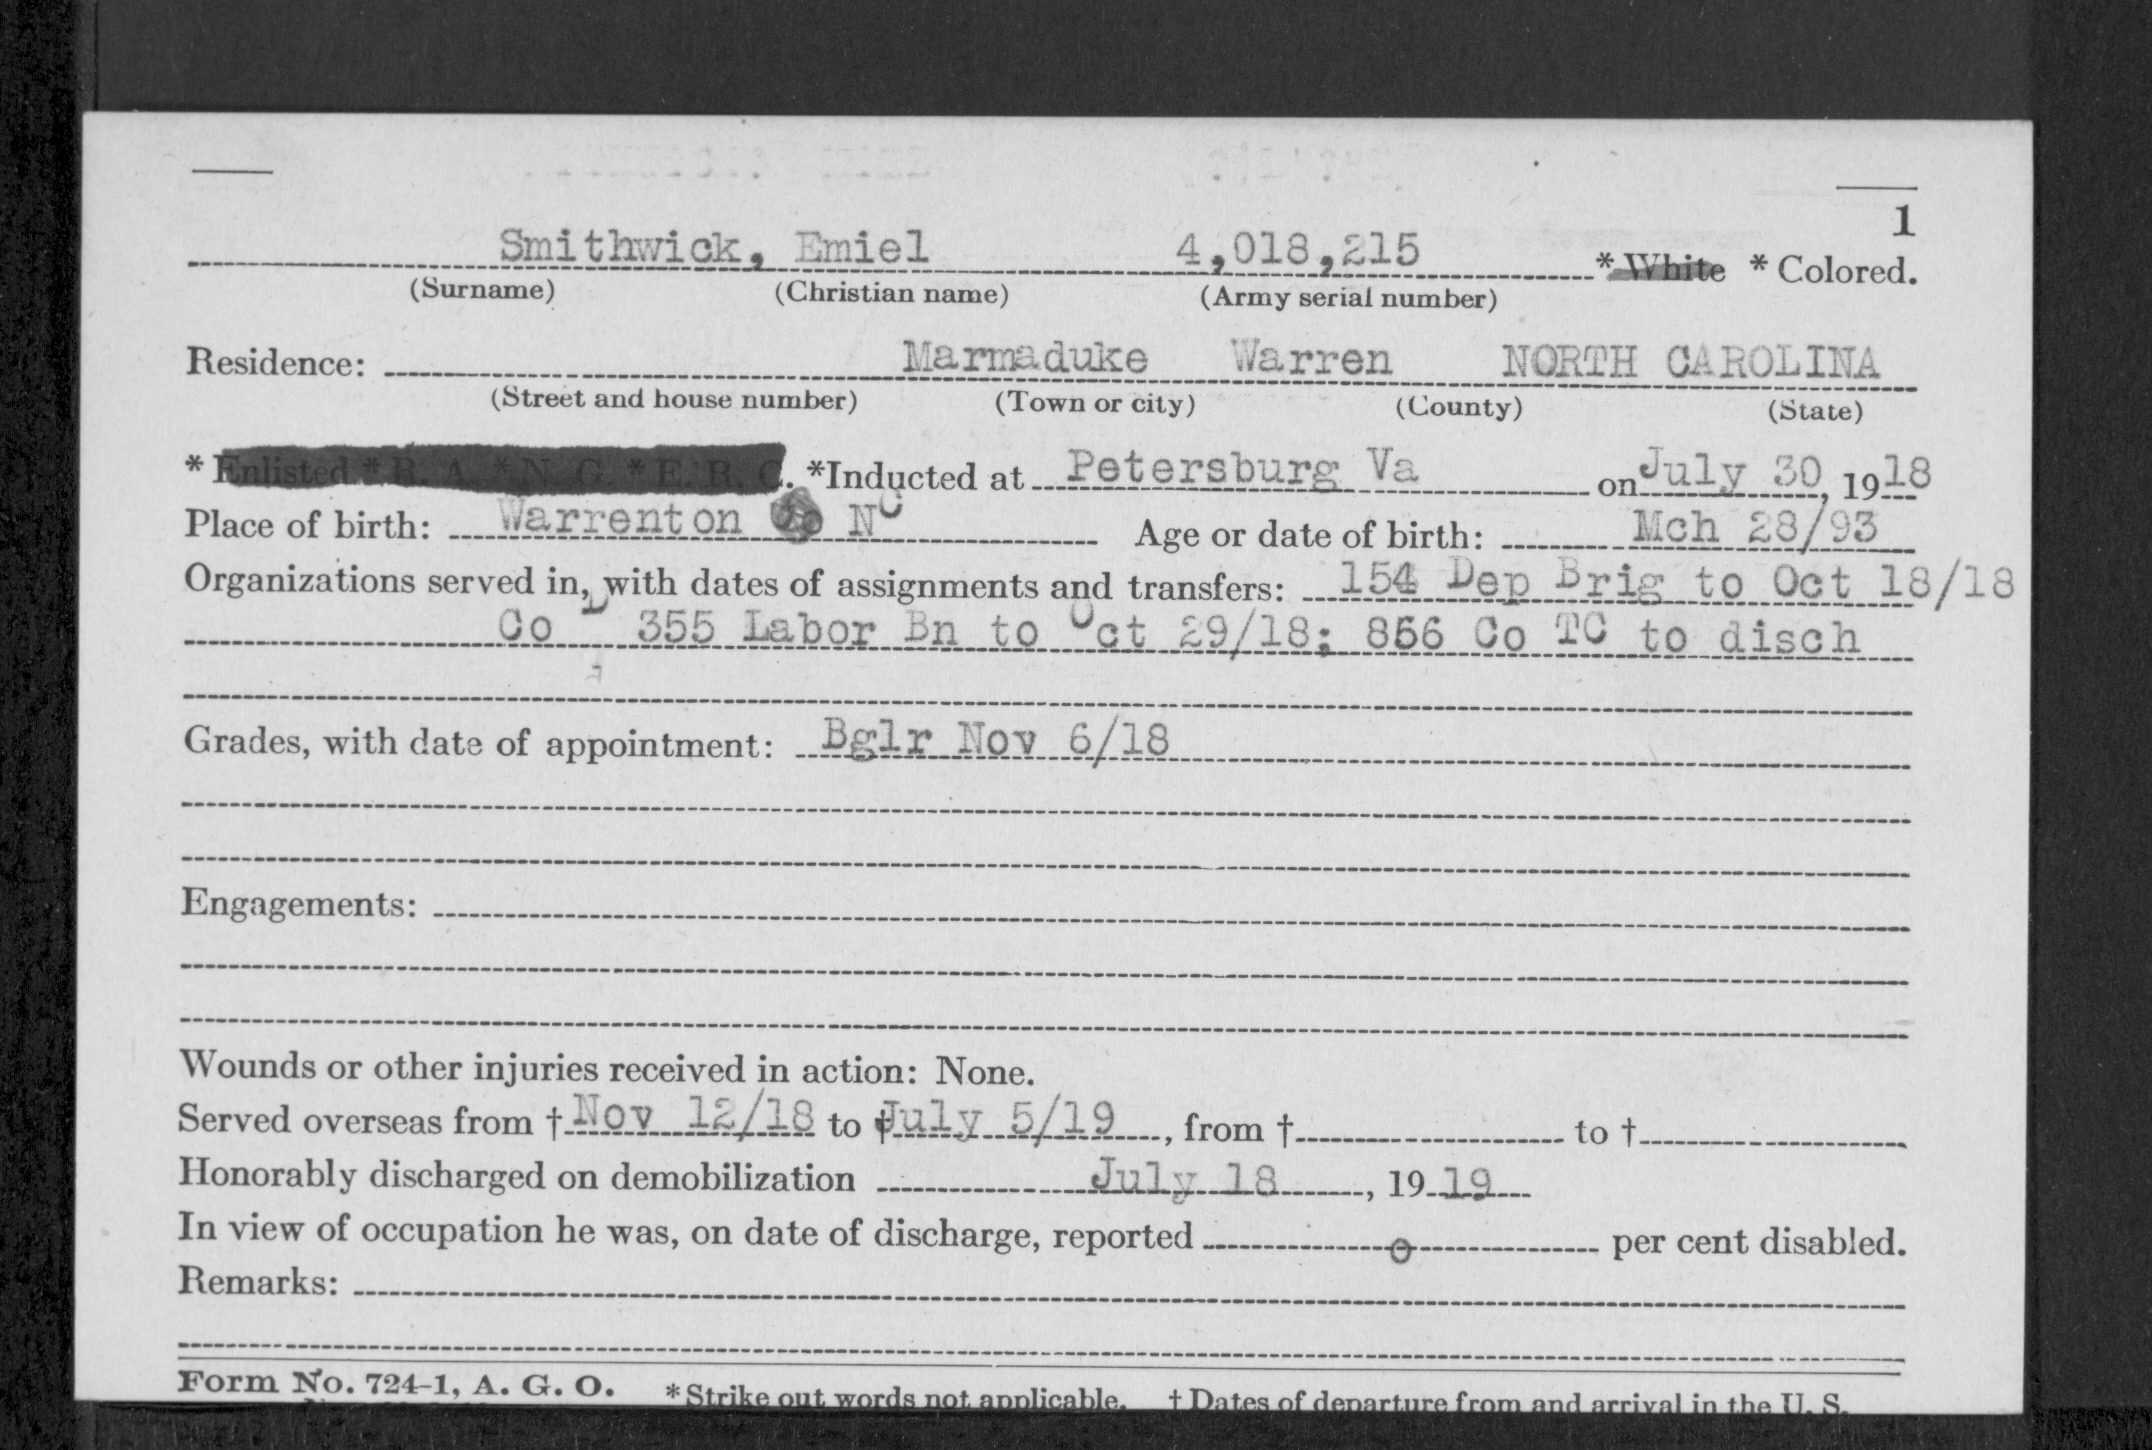 1
Smithwick, Emiel 4,018,215 * White * Colored.
(Surname) (Christian name) (Army serial number)
Residence: Marmaduke Warren NORTH CAROLINA
(Street and house number) (Town or city) (County) (State)
* Enlisted * R. A. * N. G. * E. R. C. *Inducted at Petersburg Va on July 30, 1918
Place of birth: Warrenton N C Age or date of birth: Mch 28/93
Organizations served in, with dates of assignments and transfers: 154 Dep Brig to Oct 18/18
Co D 355 Labor Bn to Oct 29/18; 856 Co TC to disch
Grades, with date of appointment: Bglr Nov 6/18
Engagements:
Wounds or other injuries received in action: None.
Served overseas from † Nov 12/18 to † July 5/19, from † to †
Honorably discharged on demobilization July 18, 1919
In view of occupation he was, on date of discharge, reported 0 per cent disabled.
Remarks:
Form No. 724-1, A. G. O. * Strike out words not applicable. † Dates of departure from and arrival in the U. S.